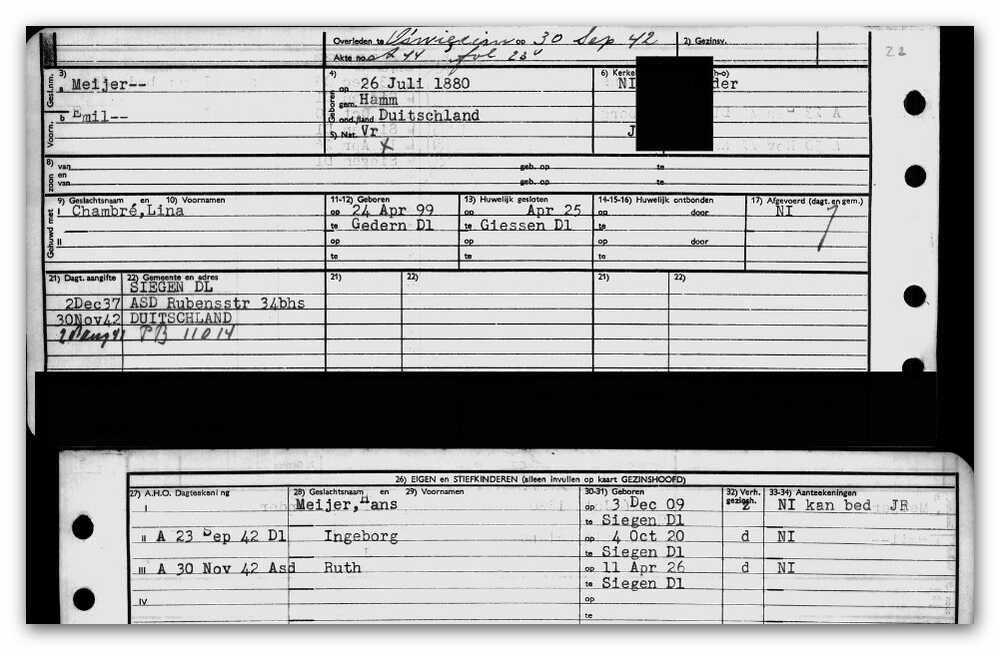 Overleden te Oświęcim op 30 Sep 42 2) Gezinsv.
Akte no. A 44 fol 23v
22
3) Gesl.nm. a Meijer--
4) Geboren op 26 Juli 1880
6) Kerkel h-o)
NI der
gem. Hamm
Voorn. b Emil--
ond./land Duitschland
5) Nat. Vr J
x
8) zoon en van geb. op te
van geb. op te
Gehuwd met 9) Geslachtsnaam en 10) Voornamen 11-12) Geboren 13) Huwelijk gesloten 14-15-16) Huwelijk ontbonden 17) Afgevoerd (dagt. en gem.)
I Chambré,Lina op 24 Apr 99 op Apr 25 op door NI
te Gedern Dl te Giessen Dl te
II op op op door
te te te
21) Dagt. aangifte 22) Gemeente en adres 21) 22) 21) 22)
SIEGEN DL
2Dec37 ASD Rubensstr 34bhs
30Nov42 DUITSCHLAND
PB 11014
26) EIGEN en STIEFKINDEREN (alleen invullen op kaart GEZINSHOOFD)
27) A.H.O. Dagteekening 28) Geslachtsnaam en 29) Voornamen 30-31) Geboren 32) Verh. gezinsh. 33-34) Aanteekeningen
I Meijer,Hans op 3 Dec 09 z NI kan bed JR
te Siegen Dl
II A 23 Sep 42 Dl Ingeborg op 4 Oct 20 d NI
te Siegen Dl
III A 30 Nov 42 Asd Ruth op 11 Apr 26 d NI
te Siegen Dl
IV op
te